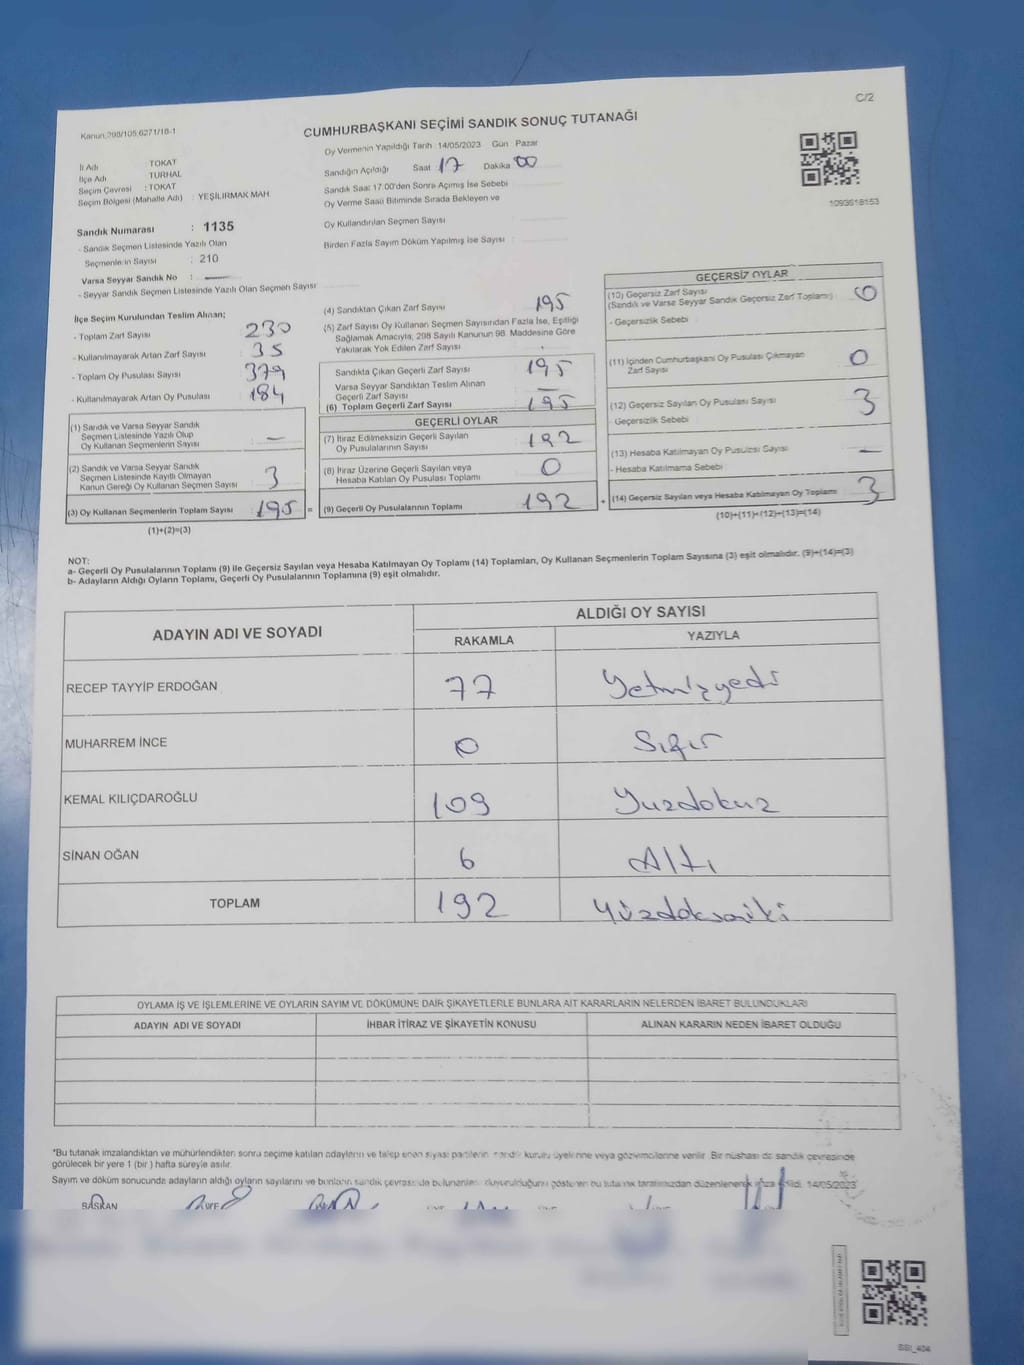 C/2
Kanun,298/105,6271/18-1
CUMHURBAŞKANI SEÇİMİ SANDIK SONUÇ TUTANAĞI
İl Adı TOKAT
İlçe Adı TURHAL
Seçim Çevresi : TOKAT
Seçim Bölgesi (Mahalle Adı) : YEŞİLIRMAK MAH
Sandık Numarası : 1135
- Sandık Seçmen Listesinde Yazılı Olan
Seçmenlerin Sayısı : 210
Varsa Seyyar Sandık No : —
- Seyyar Sandık Seçmen Listesinde Yazılı Olan Seçmen Sayısı
Oy Vermenin Yapıldığı Tarih 14/05/2023 Gün Pazar
Sandığın Açıldığı Saat 17 Dakika 00
Sandık Saat 17:00'den Sonra Açımış İse Sebebi
Oy Verme Saati Bitiminde Sırada Bekleyen ve
Oy Kullandırılan Seçmen Sayısı
Birden Fazla Sayım Döküm Yapılmış İse Sayısı
1093618153
İlçe Seçim Kurulundan Teslim Alınan;
- Toplam Zarf Sayısı 230
- Kullanılmayarak Artan Zarf Sayısı 35
- Toplam Oy Pusulası Sayısı 379
- Kullanılmayarak Artan Oy Pusulası 184
(1) Sandık ve Varsa Seyyar Sandık
Seçmen Listesinde Yazılı Olup
Oy Kullanan Seçmenlerin Sayısı —
(2) Sandık ve Varsa Seyyar Sandık
Seçmen Listesinde Kayıtlı Olmayan
Kanun Gereği Oy Kullanan Seçmen Sayısı 3
(3) Oy Kullanan Seçmenlerin Toplam Sayısı 195 =
(1)+(2)=(3)
(4) Sandıktan Çıkan Zarf Sayısı 195
(5) Zarf Sayısı Oy Kullanan Seçmen Sayısından Fazla İse, Eşitliği
Sağlamak Amacıyla, 298 Sayılı Kanunun 98. Maddesine Göre
Yakılarak Yok Edilen Zarf Sayısı
Sandıkta Çıkan Geçerli Zarf Sayısı 195
Varsa Seyyar Sandıktan Teslim Alınan
Geçerli Zarf Sayısı —
(6) Toplam Geçerli Zarf Sayısı 195
GEÇERLİ OYLAR
(7) İtiraz Edilmeksizin Geçerli Sayılan
Oy Pusulalarının Sayısı 192
(8) İtiraz Üzerine Geçerli Sayılan veya
Hesaba Katılan Oy Pusulası Toplamı 0
(9) Geçerli Oy Pusulalarının Toplamı 192 +
GEÇERSİZ OYLAR
(10) Geçersiz Zarf Sayısı
(Sandık ve Varsa Seyyar Sandık Geçersiz Zarf Toplamı) 0
- Geçersizlik Sebebi
(11) İçinden Cumhurbaşkanı Oy Pusulası Çıkmayan
Zarf Sayısı 0
(12) Geçersiz Sayılan Oy Pusulası Sayısı 3
- Geçersizlik Sebebi
(13) Hesaba Katılmayan Oy Pusulası Sayısı —
- Hesaba Katılmama Sebebi
(14) Geçersiz Sayılan veya Hesaba Katılmayan Oy Toplamı 3
(10)+(11)+(12)+(13)=(14)
NOT:
a- Geçerli Oy Pusulalarının Toplamı (9) ile Geçersiz Sayılan veya Hesaba Katılmayan Oy Toplamı (14) Toplamları, Oy Kullanan Seçmenlerin Toplam Sayısına (3) eşit olmalıdır. (9)+(14)=(3)
b- Adayların Aldığı Oyların Toplamı, Geçerli Oy Pusulalarının Toplamına (9) eşit olmalıdır.
ADAYIN ADI VE SOYADI ALDIĞI OY SAYISI
RAKAMLA YAZIYLA
RECEP TAYYİP ERDOĞAN 77 Yetmişyedi
MUHARREM İNCE 0 Sıfır
KEMAL KILIÇDAROĞLU 109 Yuzdokuz
SİNAN OĞAN 6 Altı
TOPLAM 192 Yüzdoksaniki
OYLAMA İŞ VE İŞLEMLERİNE VE OYLARIN SAYIM VE DÖKÜMÜNE DAİR ŞİKAYETLERLE BUNLARA AİT KARARLARIN NELERDEN İBARET BULUNDUKLARI
ADAYIN ADI VE SOYADI İHBAR İTİRAZ VE ŞİKAYETİN KONUSU ALINAN KARARIN NEDEN İBARET OLDUĞU
*Bu tutanak imzalandıktan ve mühürlendikten sonra seçime katılan adayların ve talep eden siyasi partilerin sandık kurulu üyelerine veya gözlemcilerine verilir. Bir nüshası da sandık çevresinde
görülecek bir yere 1 (bir ) hafta süreyle asılır.
Sayım ve döküm sonucunda adayların aldığı oyların sayılarını ve bunların sandık çevresinde bulunanlara duyurulduğunu gösteren bu tutanak tarafımızdan düzenlenerek imza edildi. 14/05/2023
BAŞKAN
SSI_404